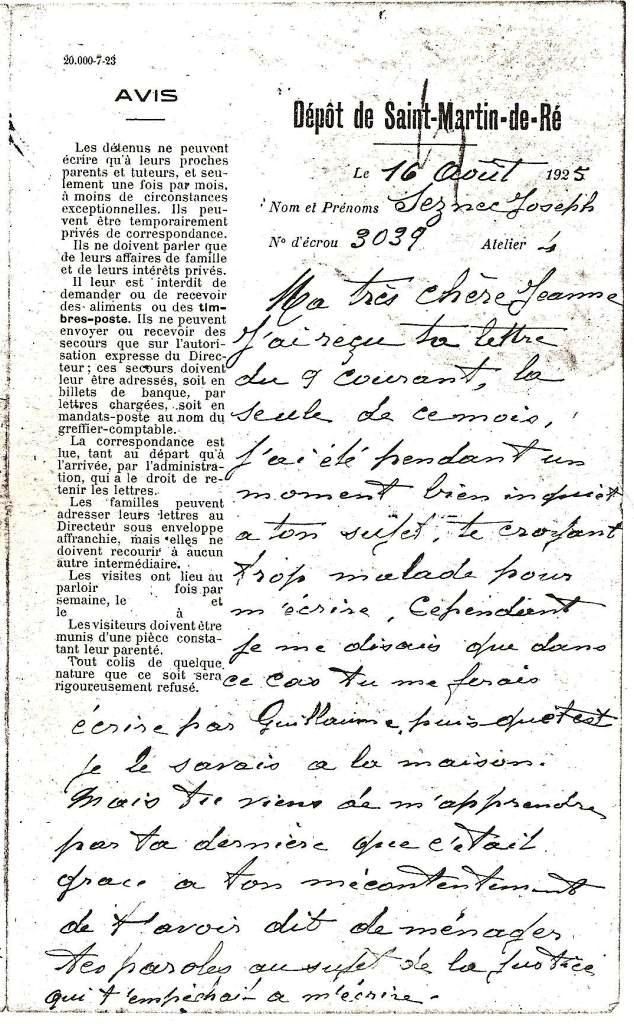 20.000-7-23
AVIS
Les détenus ne peuvent
écrire qu'à leurs proches
parents et tuteurs, et seu-
lement une fois par mois,
à moins de circonstances
exceptionnelles. Ils peu-
vent être temporairement
privés de correspondance.
Ils ne doivent parler que
de leurs affaires de famille
et de leurs intérêts privés.
Il leur est interdit de
demander ou de recevoir
des aliments ou des tim-
bres-poste. Ils ne peuvent
envoyer ou recevoir des
secours que sur l'autori-
sation expresse du Direc-
teur ; ces secours doivent
leur être adressés, soit en
billets de banque, par
lettres chargées, soit en
mandats-poste au nom du
greffier-comptable.
La correspondance est
lue, tant au départ qu'à
l'arrivée, par l'administra-
tion, qui a le droit de re-
tenir les lettres.
Les familles peuvent
adresser leurs lettres au
Directeur sous enveloppe
affranchie, mais elles ne
doivent recourir à aucun
autre intermédiaire.
Les visites ont lieu au
parloir fois par
semaine, le et
le à
Les visiteurs doivent être
munis d'une pièce consta-
tant leur parenté.
Tout colis de quelque
nature que ce soit sera
rigoureusement refusé.
Dépôt de Saint-Martin-de-Ré
Le 16 Août 1925
Nom et Prénoms Seznec Joseph
N° d'écrou 3039 Atelier 4
Ma très chère Jeanne
J'ai reçu ta lettre
du 9 courant, la
seule de ce mois,
j'ai été pendant un
moment bien inquiet
a ton sujet, te croyant
trop malade pour
m'écrire, Cependant
je me disais que dans
ce cas tu me ferais
écrire par Guillaume, puis
je le savais a la maison.
Mais tu viens de m'apprendre
par ta dernière que c'était
grace a ton mécontentement
de t'avoir dit de ménager
tes paroles au sujet de la justice
qui t'empéchait a m'écrire.